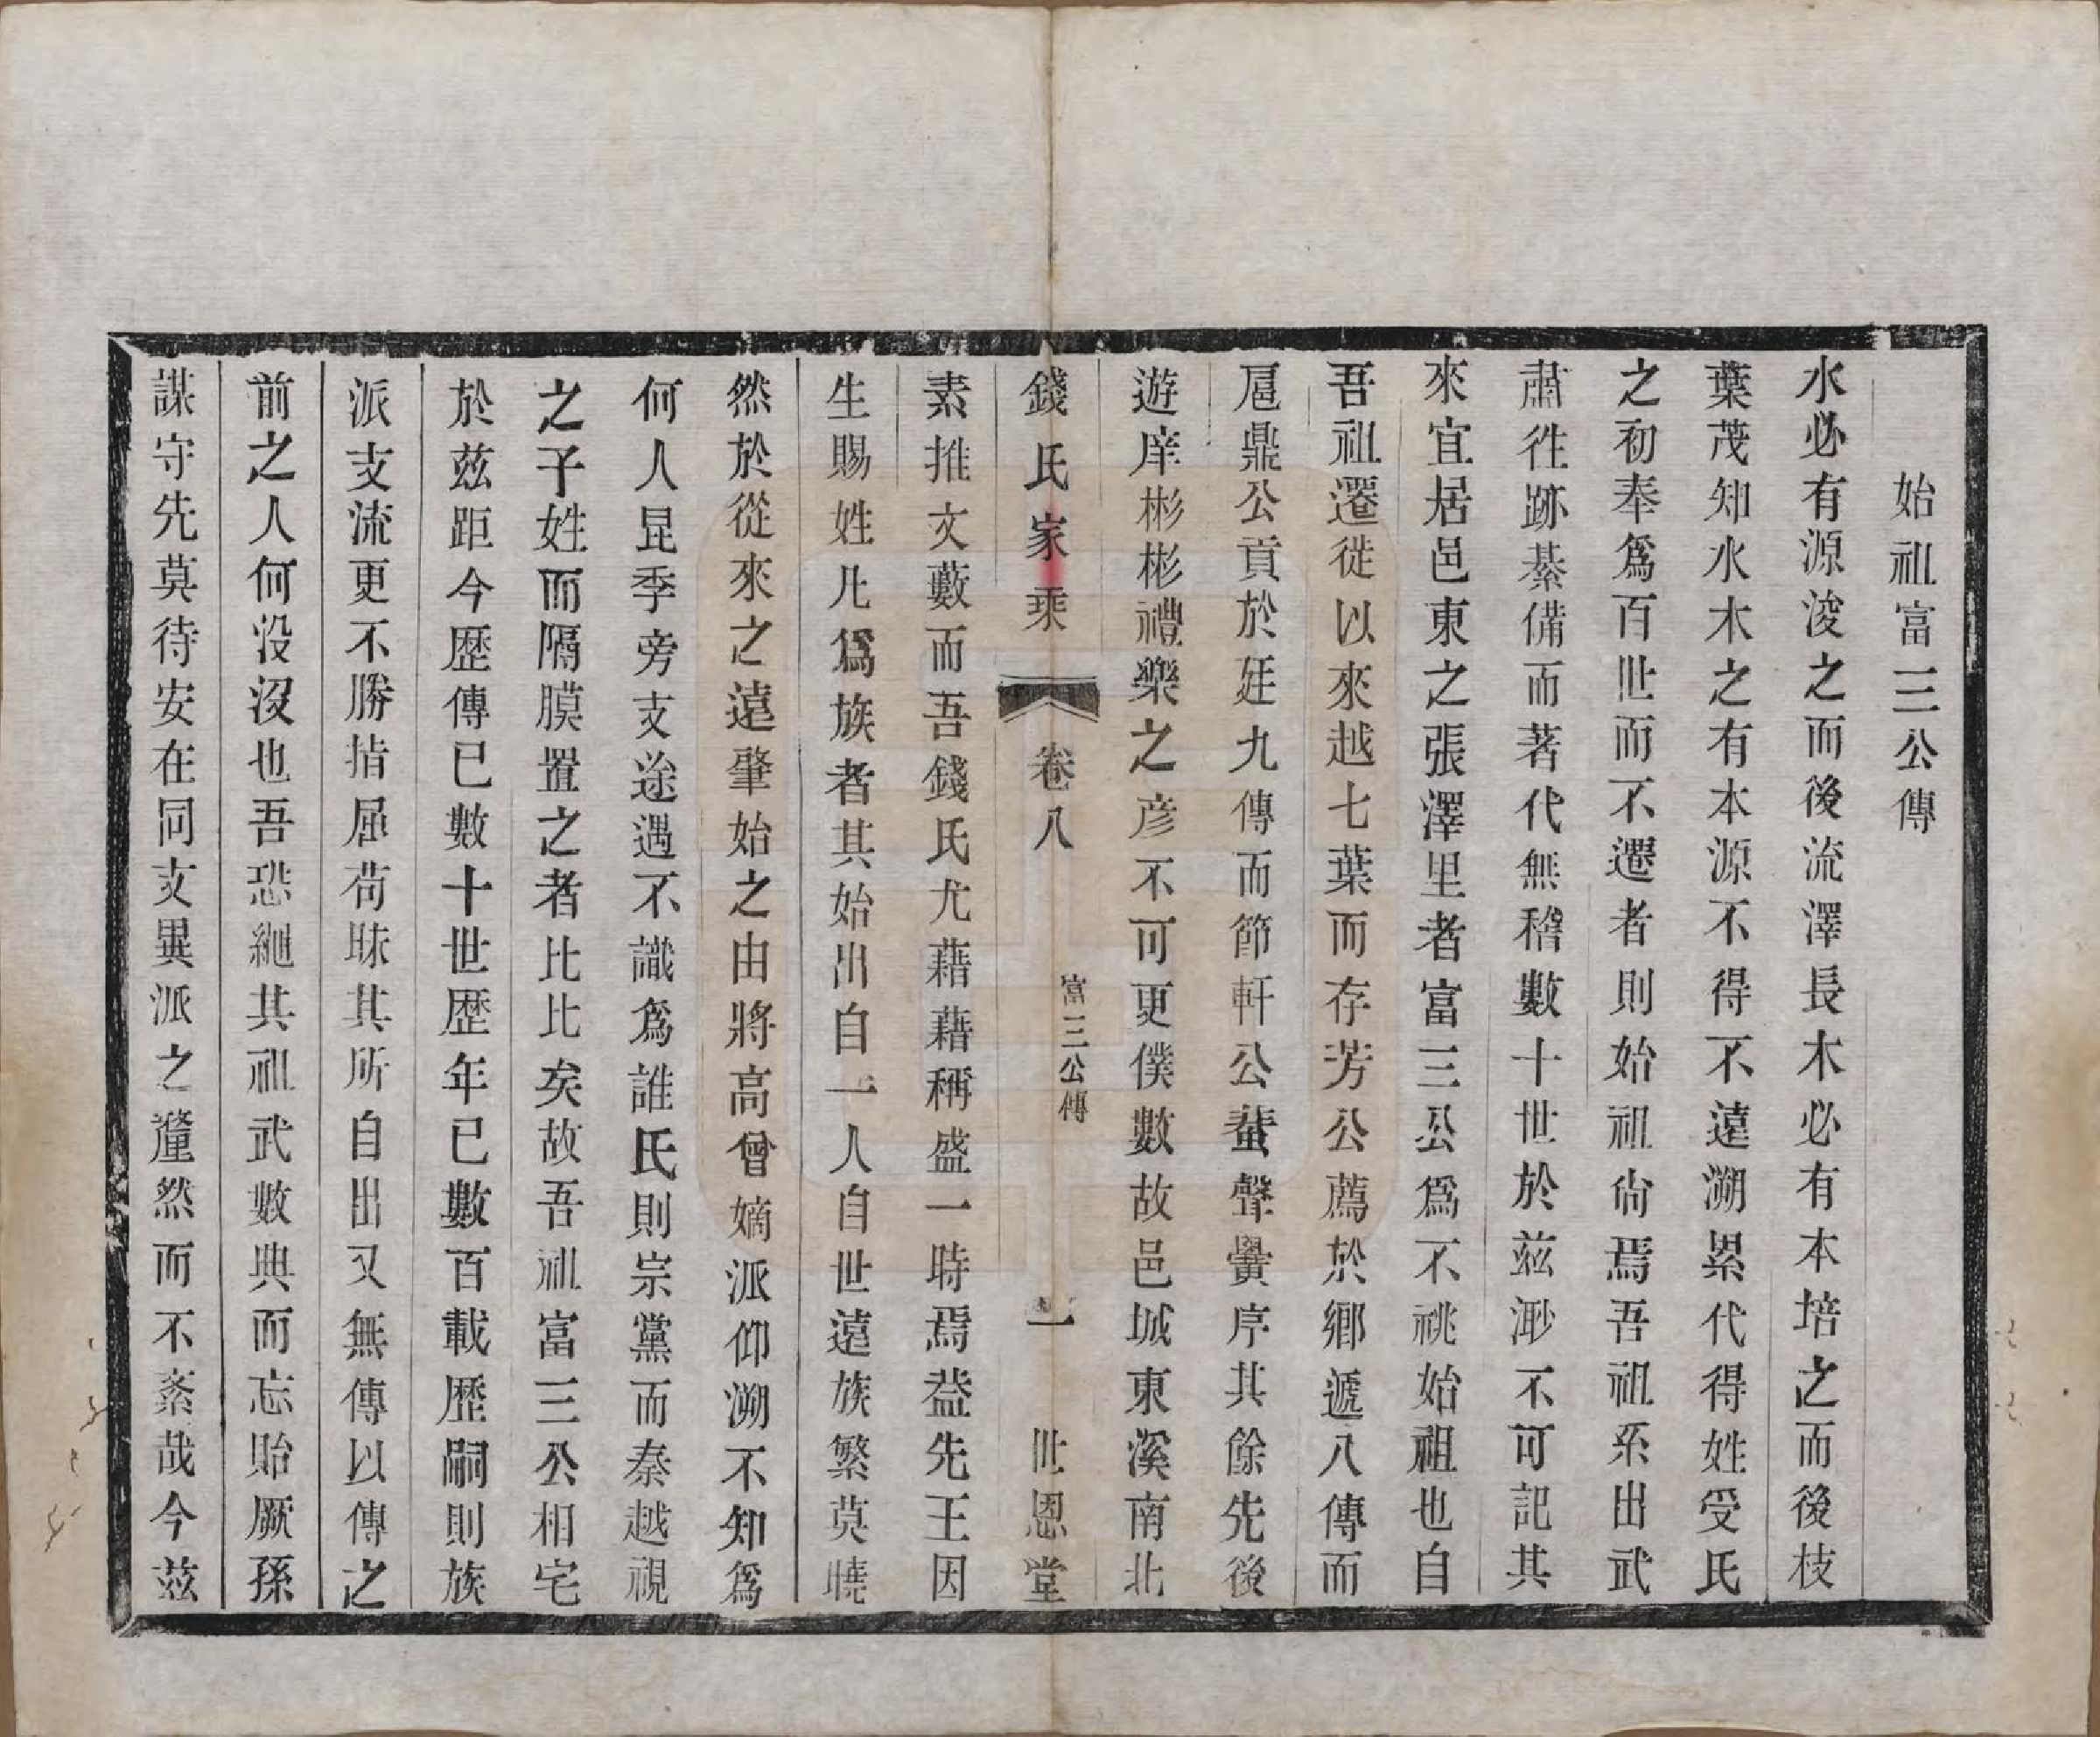 始祖富三公傳
水必有源浚之而後流澤長木必有本培之而後枝
葉茂知水木之有本源不得不遠溯累代得姓受氏
之初奉爲百世而不遷者則始祖尙焉吾祖系出武
肅徃跡綦備而著代無稽數十世於兹渺不可記其
來宜居邑東之張澤里者富三公爲不祧始祖也自
吾祖遷徙以來越七葉而存芳公薦於鄉遞八傳而
扈鼎公貢於廷九傳而節軒公蜚聲黌序其餘先後
遊庠彬彬禮樂之彥不可更僕數故邑城東溪南北
錢氏家乘
卷八
富三公傳
一
世恩堂
素推文藪而吾錢氏尤藉藉稱盛一時焉葢先王因
生賜姓凡爲族者其始出自一人自世遠族繁莫曉
然於從來之遠肇始之由將高曾嫡派仰溯不知爲
何人昆季旁支途遇不識爲誰氏則宗黨而秦越視
之子姓而隔膜置之者比比矣故吾祖富三公相宅
於兹距今歷傳已數十世歷年已數百載歷嗣則族
派支流更不勝指屈茍昧其所自出又無傳以傳之
前之人何没没也吾恐繩其祖武數典而忘貽厥孫
謀守先莫待安在同支異派之釐然而不紊哉今兹